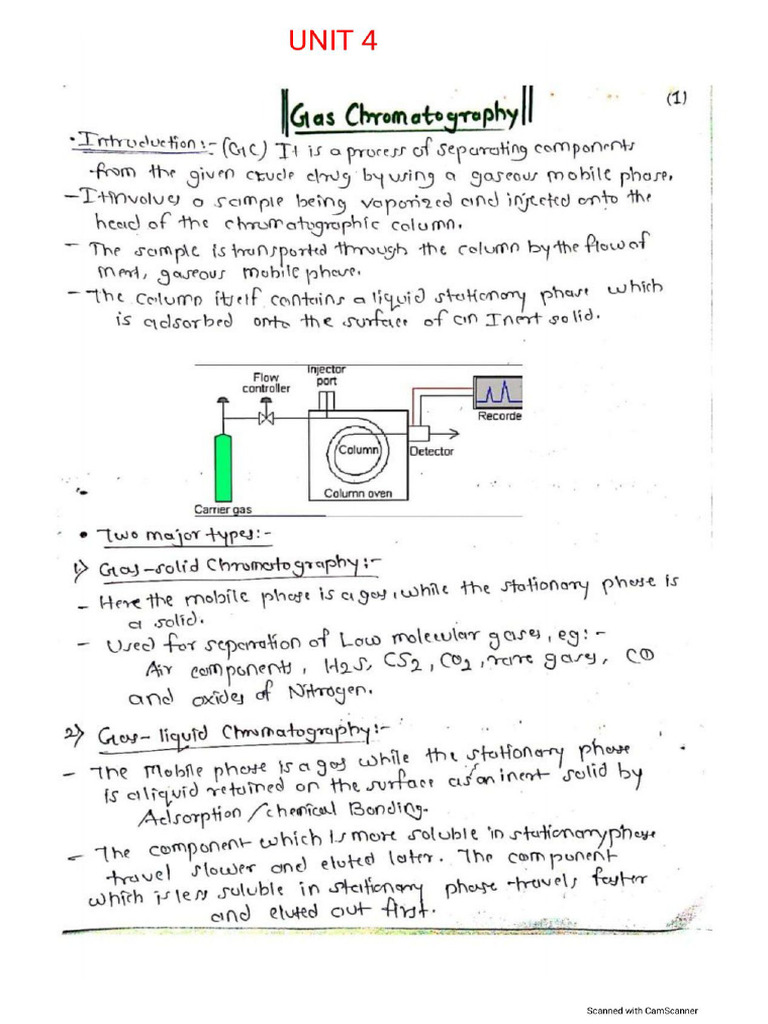 UNIT 4
(1)
||Gas Chromatography||
• Introduction:- (GC) It is a process of separating components
from the given crude drug by using a gaseous mobile phase.
- It involves a sample being vaporized and injected onto the
head of the chromatographic column.
- The sample is transported through the column by the flow of
inert, gaseous mobile phase.
- The column itself contains a liquid stationary phase which
is adsorbed onto the surface of an Inert solid.
Flow
controller
Injector
port
Recorde
Column
Detector
Column oven
Carrier gas
• Two major types:-
1) Gas-solid Chromatography:-
- Here the mobile phase is a gas, while the stationary phase is
a solid.
- Used for separation of Low molecular gases, eg:-
Air components, H2S, CS2, CO2, rare gases, CO
and oxides of Nitrogen.
2) Gas-liquid Chromatography:-
- The Mobile phase is a gas while the stationary phase
is a liquid retained on the surface as an inert solid by
Adsorption/chemical Bonding.
- The component which is more soluble in stationary phase
travel slower and eluted later. The component
which is less soluble in stationary phase travels faster
and eluted out first.
Scanned with CamScanner